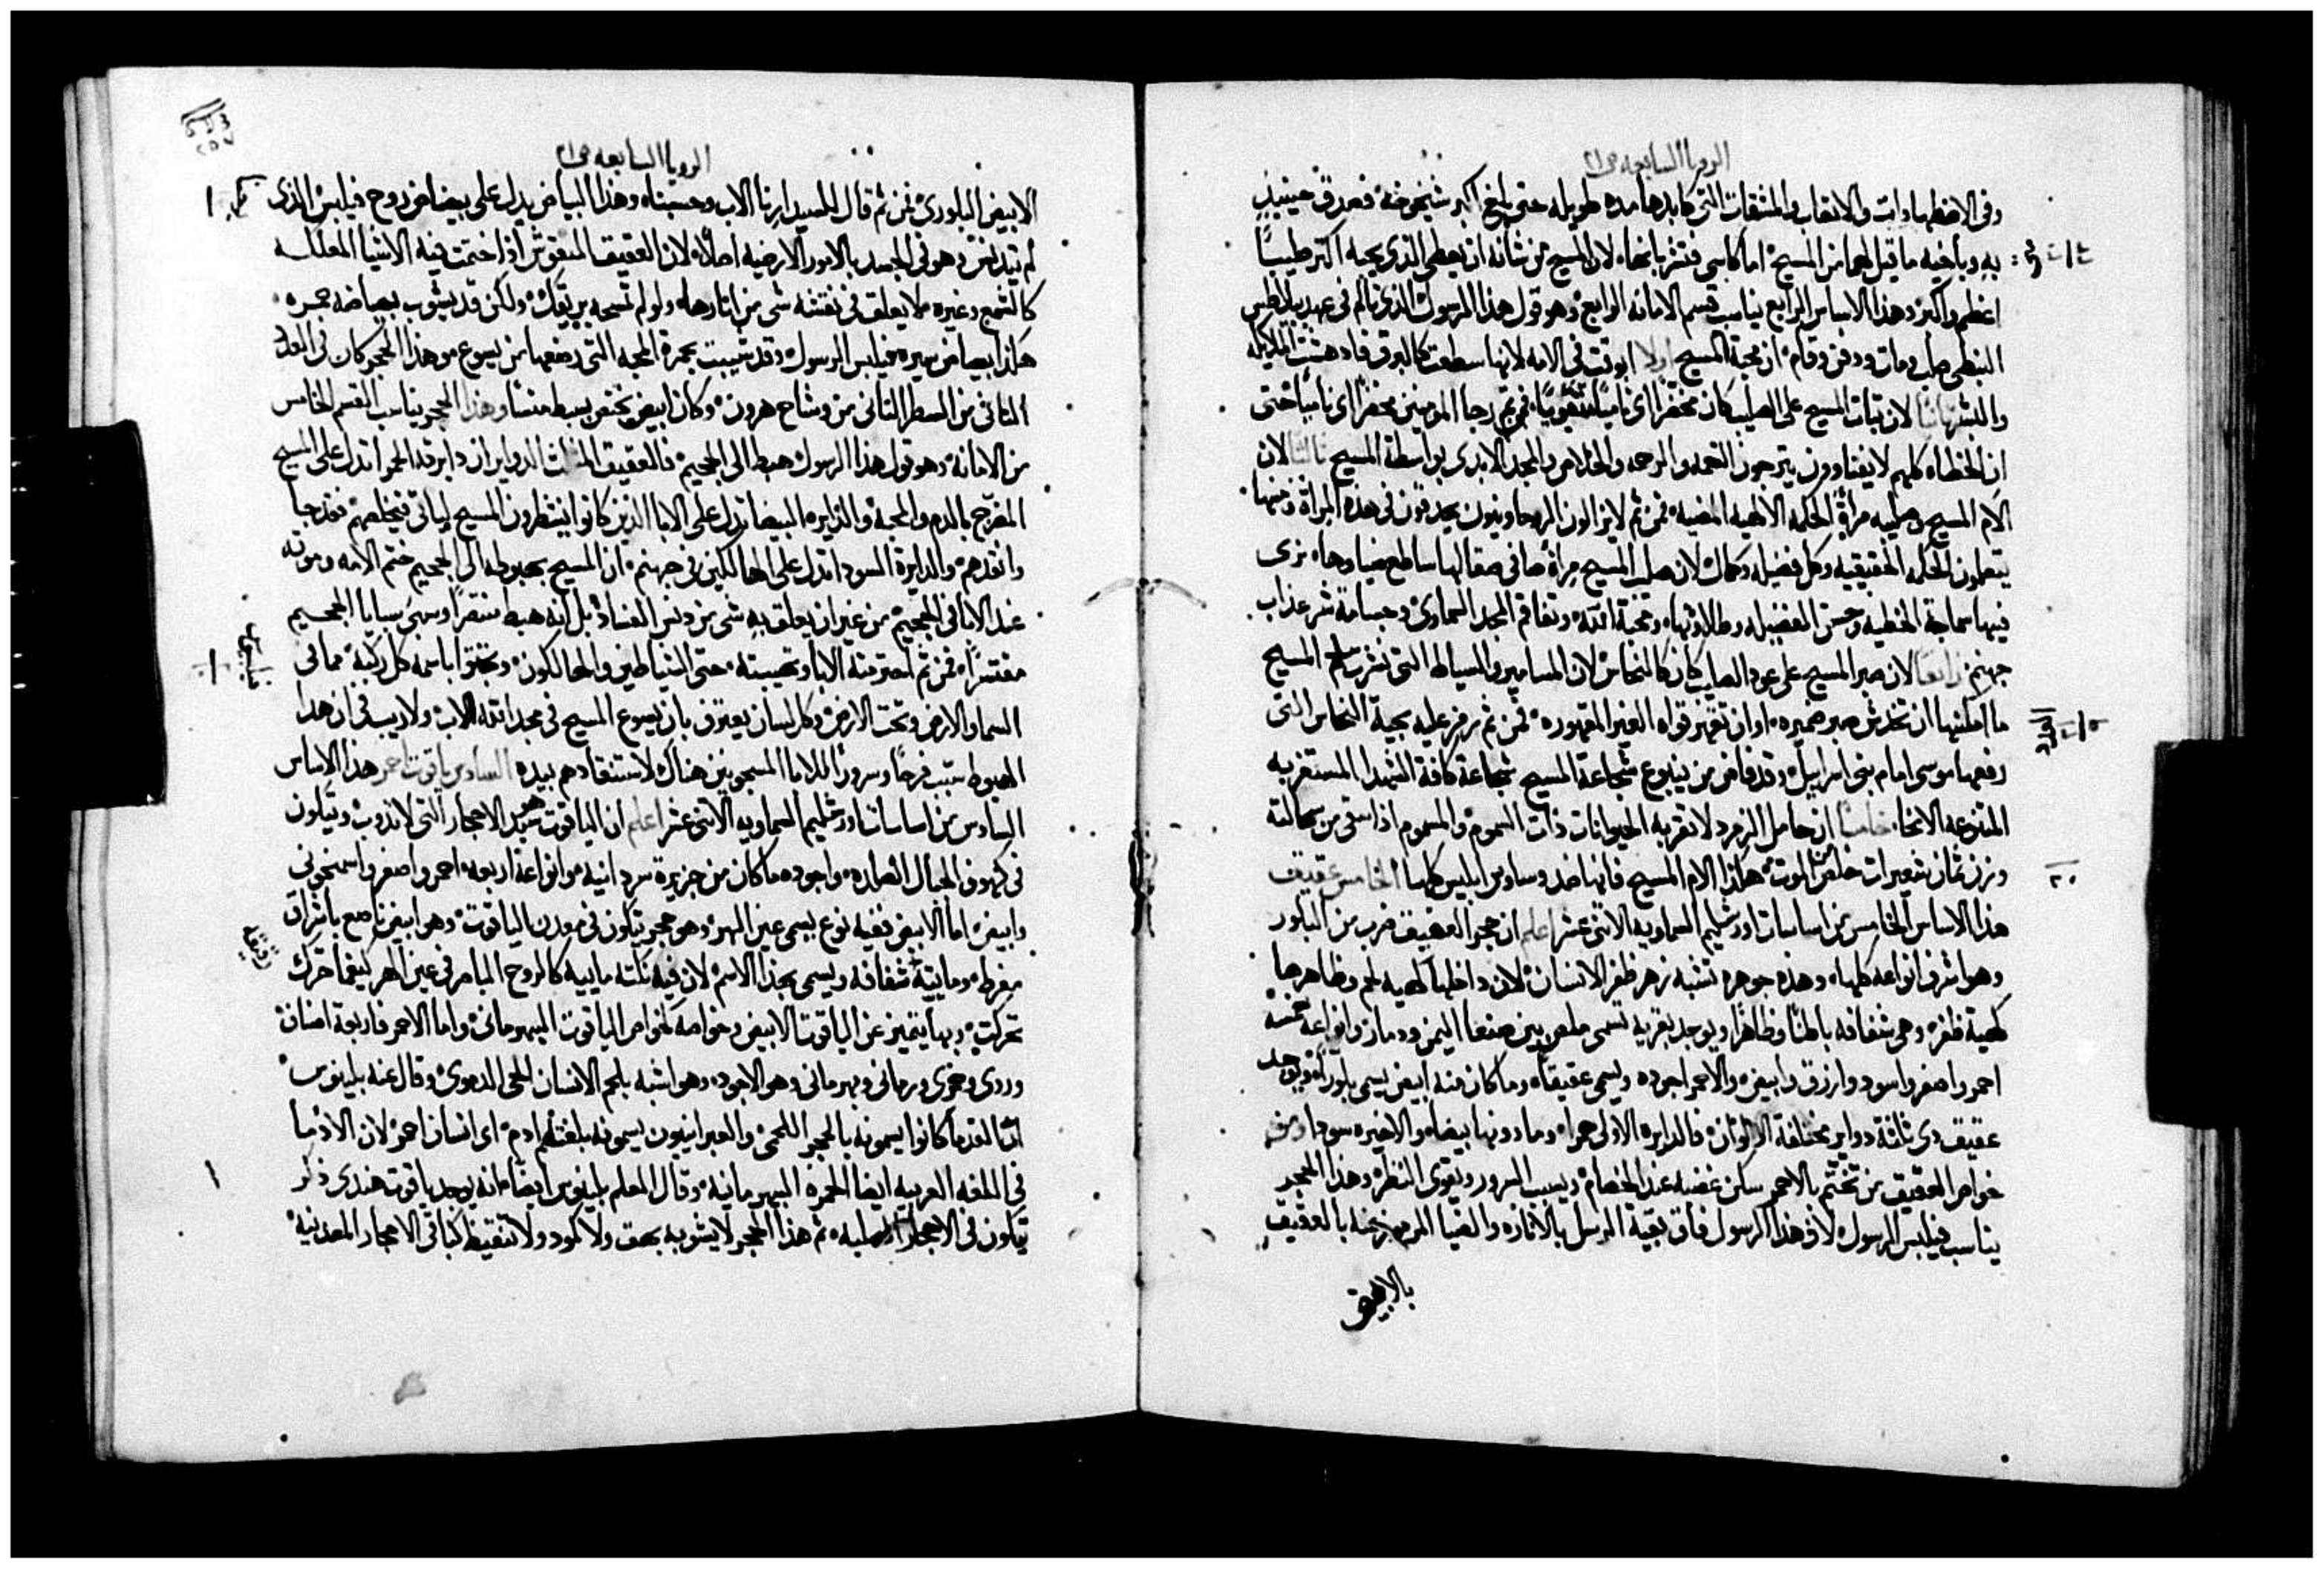 الرويا السابعه ص٢١
وفي الاضطهادات والاتعاب والمشقات التي كابدها مده طويله حتى بلغ اكبر شيخوخة فصدق حينيذٍ
به وباخيه ما قيل لهما من المسيح اما كاسي فتشربانها لان المسيح من شانه ان يعطي الذي يحبه اكثر صليبًا
اعظم واكبر وهذا الاساس الرابع يناسب قسم الامانه الرابع وهو قول هذا الرسول الذي تالم في عهد بيلاطس
النبطي صلب ومات ودفن وقام ان محبة المسيح اولا ابرقت في الامه لانها سطعت كالبرق فادهشت الملايكه
والبشر ثانيًا لان ثبات المسيح على الصليب كان مخضرًا اي ناميًا متقويًا فمن ثم رجا المومنين مخضرًا اي ناميًا حتى
ان الخطاه كلهم لا يفتاوون يترجون النعمه والرحمه والخلاص والمجد الابدي بواسطة المسيح ثالثا لان
الام المسيح وصليبه مرآة الحكمه الالهيه المضيه فمن ثم لا يزالون الروحاويون يحدقون في هذه المراة ومنها
يتعلمون الحكمه الحقيقيه وكل فضيله وكمال لان صليب المسيح مراة صافي صقالها ساطع ضياوها نرى
فيها سماجة الخطيه وحسن الفضيله وطلاوتها ومحبة الله وتفاقم المجد السماوي وجسامة شر عذاب
جهنم رابعًا لان صبر المسيح على عود الصليب كان كالنحاس لان المسامير والسياط التي جسم المسيح
ما امكنها ان تخدش صبر ضميره او ان تقهر قواه الغير المقهوره فمن ثم رمز عليه بحية النحاس التي
رفعها موسى امام بني اسراييل وقد فاض من ينبوع شجاعة المسيح شجاعة كافة الشهدا المستغربه
المتنوعه الانحا خامسًا ان حامل الزمرد لا تقربه الحيوانات ذات السموم والمسموم اذا سقي من سحالته
وزن ثمان شعيرات خلص من الموت هكذا الام المسيح فانها ضد وساوس ابليس كلها الخامس عقيق
هذا الاساس الخامس من اساسات اورشليم السماويه الاثنى عشر اعلم ان حجر العقيق ضرب من البلور
وهو اشرف انواعه كلها وهذه جوهره تشبه زهر ظفر الانسان لان داخلها كهية لحم وظاهرها
كهية ظفر وهي شفافه باطنًا وظاهرًا ويوجد بقريه تسمى ملص بين صنعا اليمن ودمار وانواعه خمسة
احمر واصفر واسود وازرق وابيض والاحمر اجوده ويسمى عقيقًا وما كان منه ابيض يسمى بلورًا ويوجد
عقيق ذي ثلثة دواير مختلفة الالوان فالدايره الاولى حمرا وما دونها بيضا والاخيره سودا ومن
خواص العقيق من تختم بالاحمر سكن غضبه عند الخصام ويسبب السرور ويقوي النظر وهذا الحجر
يناسب فيلبس الرسول لان هذا الرسول فاق بقية الرسل بالانارة والضيا المرموز عنه بالعقيق
بالابيض
الرويا السابعه ص٢١
الابيض البلوري فمن ثم قال للسيد ارنا الاب وحسبنا وهذا البياض يدل على بياض روح فيلبس الذي
لم يتدنس وهو في الجسد بالامور الارضيه اصلًا لان العقيق المنقوش اذا ختمت فيه الاشيا المعلكه
كالشمع وغيره لا يعلق في نقشه شي من اثارها ولو لم تمسحه بريقك ولكن قد يشوب بياضه حمره
هكذا بياض سيرة فيلبس الرسول وقد شيبت بحمرة المحبه التي رضعها من يسوع وهذا الحجر كان في العدد
الثاني من السطر الثاني من وشاح هرون وكان ابيض يختص بسبط منشا وهذا الحجر يناسب القسم الخامس
من الامانه وهو قول هذا الرسول هبط الى الجحيم فالعقيق المثلث الدواير ان دايرته الحمرا تدل على المسيح
المضرج بالدم والمحبة والدايره البيضا تدل على الابا الذين كانوا ينتظرون المسيح لياتي فيخلصهم فقد جا
وانقذهم والدايرة السودا تدل على الهالكين في جهنم ان المسيح بهبوطه الى الجحيم ختم الامه وموته
عند الابا في الجحيم من غير ان يعلق به شي من دنس الفساد بل انه هبط منتصرًا وسبى سبايا الجحيم
مفتسرًا فمن ثم احترمته الابا وتهيبته حتى الشياطين والهالكون وتجثوا باسمه كل ركبة مما في
السما والارض وتحت الارض وكل لسان يعترف بان يسوع المسيح في مجد الله الاب ولا ريب في ان هذا
الهبوط سبب فرحًا وسرورًا للابا المسجونين هناك لاستنقادهم بيده السادس ياقوت احمر هذا الاساس
السادس من اساسات اورشليم السماويه الاثنى عشر اعلم ان الياقوت سيد الاحجار التي لا تذوب ويتكون
في كهوف الجبال الصلده واجوده ما كان من جزيرة سردانيه وانواعه اربعه احمر واصفر واسمنجوني
وابيض اما الابيض ففيه نوع يسمى عين الهر وهو حجر يتكون في معدن الياقوت وهو ابيض ناصع باشراق
مفرط ومايية شفافه ويسمى بهذا الاسم لان فيه نكته ماييه كالروح الباصر في عين الهر كيفما تحرك
تحركت وبها يتميز عن الياقوت الابيض وخواصه كخواص الياقوت البهرماني واما الاحمر فاربعة اصناف
وردي وخمري ورماني وبهرماني وهو الاجود وهو اشبه بلحم الانسان اللحمي الدموي وقال عنه بلينوس
ان القدما كانوا يسمونه بالحجر اللحمي والعبرانيون يسمونه بلغتهم ادم اي انسان احمر لان الادما
في اللغه العربيه ايضا الحمره البهرمانيه وقال المعلم بلينوس ايضا انه يوجد ياقوت هندي ذكر
يتكون في الاحجار الصلبه ثم هذا الحجر لا يشوبه بهق ولا كمود ولا تنقيط كباقي الاحجار المعدنيه